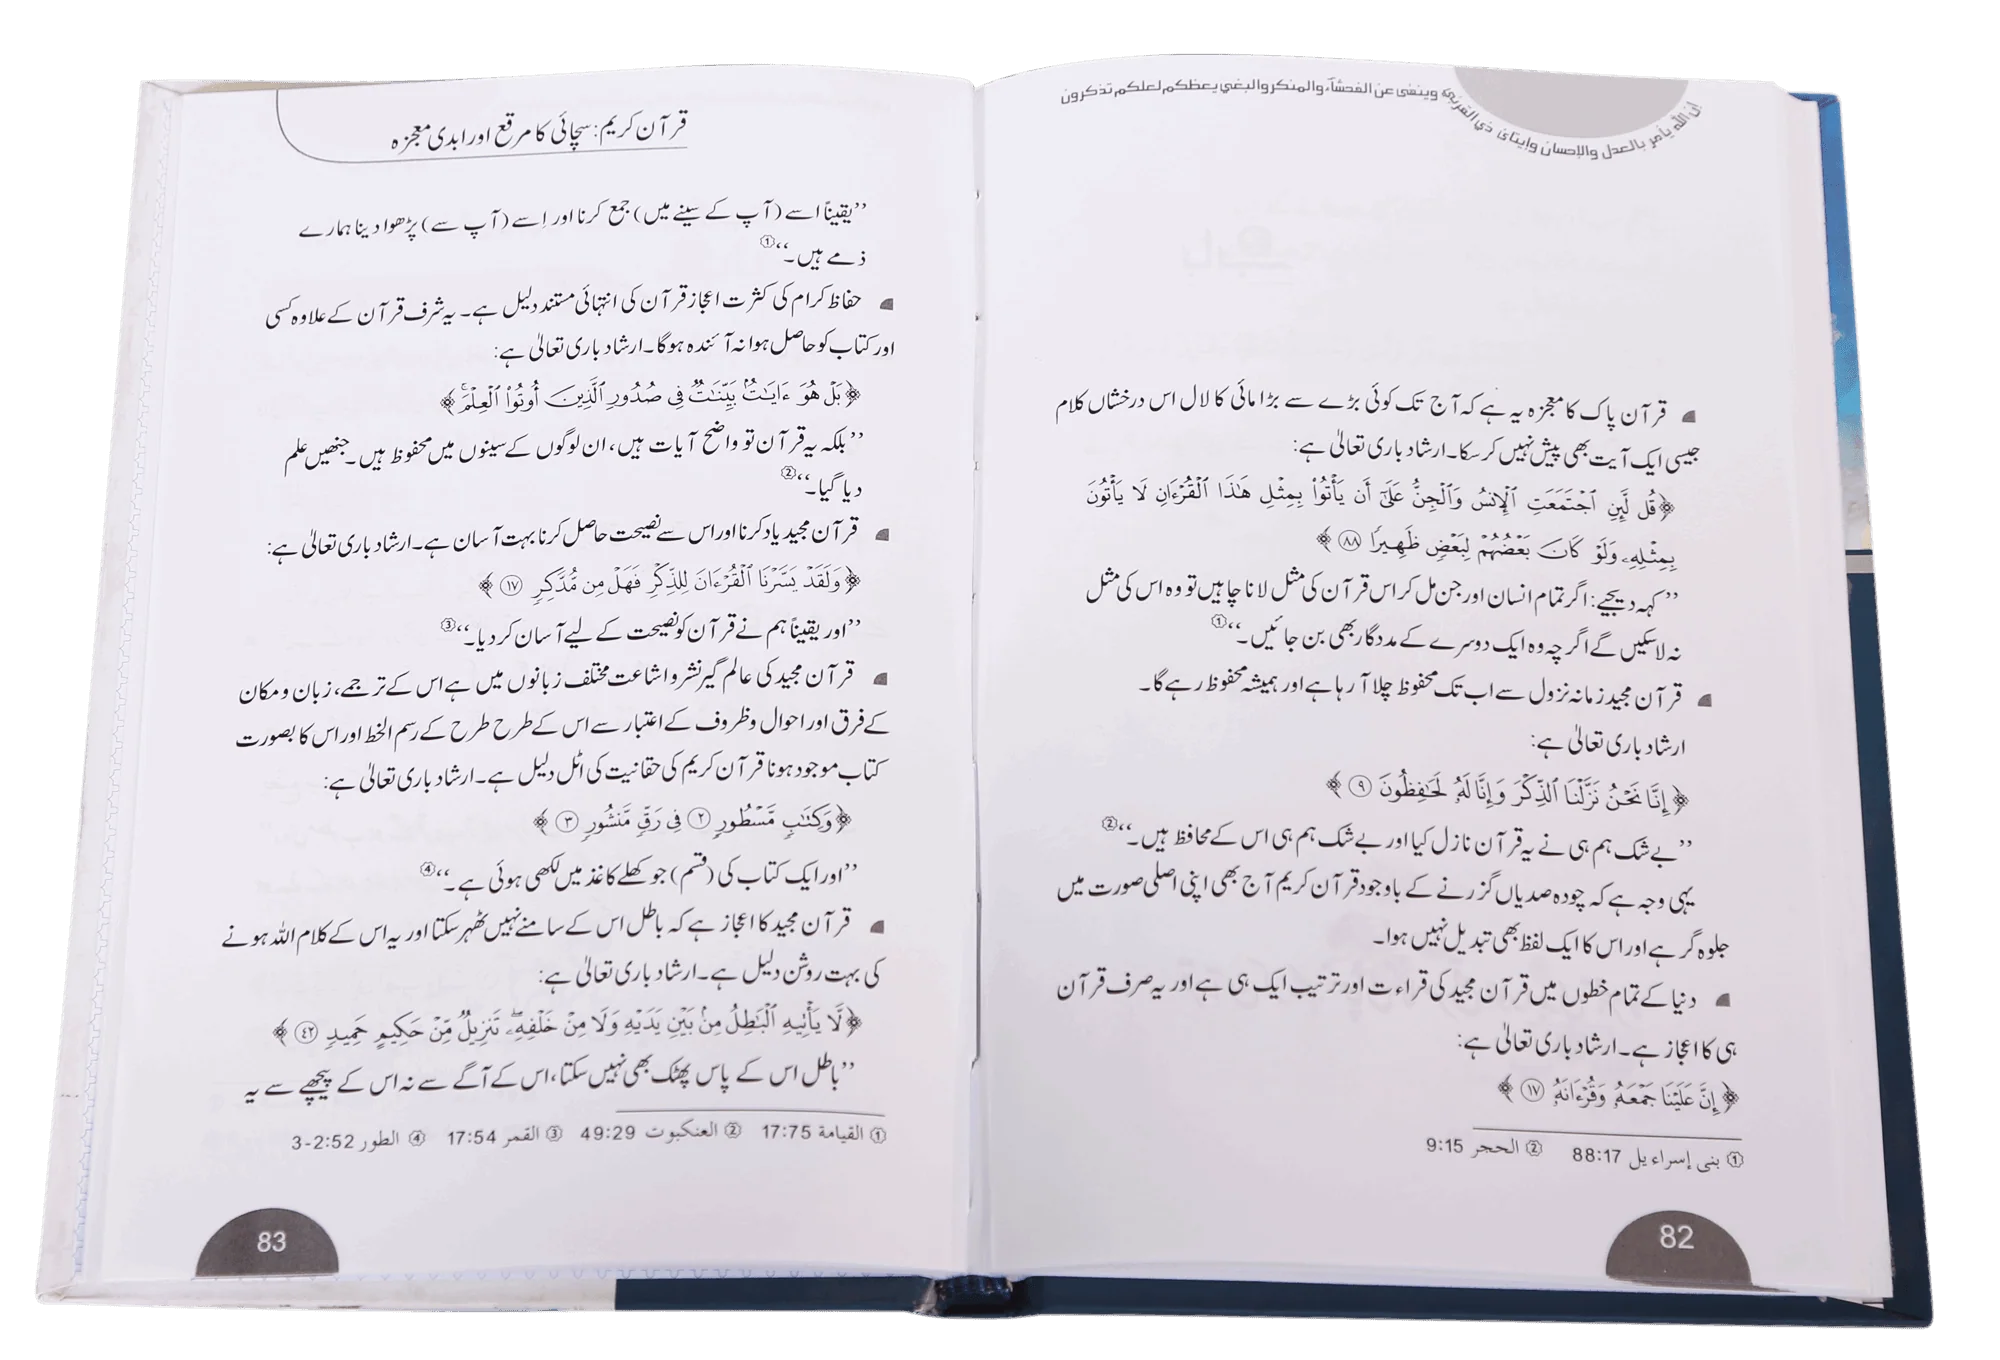 إن الله يأمر بالعدل والإحسان وإيتائ ذي القربى وينهى عن الفحشاء والمنكر والبغي يعظكم لعلكم تذكرون
قرآن پاک کا معجزہ یہ ہے کہ آج تک کوئی بڑے سے بڑا مائی کا لال اس درخشاں کلام
جیسی ایک آیت بھی پیش نہیں کرسکا۔ ارشاد باری تعالیٰ ہے:
﴿قُل لَّئِنِ ٱجۡتَمَعَتِ ٱلۡإِنسُ وَٱلۡجِنُّ عَلَىٰٓ أَن يَأۡتُواْ بِمِثۡلِ هَٰذَا ٱلۡقُرۡءَانِ لَا يَأۡتُونَ
بِمِثۡلِهِۦ وَلَوۡ كَانَ بَعۡضُهُمۡ لِبَعۡضٖ ظَهِيرٗا ٨٨﴾
’’کہہ دیجیے: اگر تمام انسان اور جن مل کر اس قرآن کی مثل لانا چاہیں تو وہ اس کی مثل
نہ لاسکیں گے اگرچہ وہ ایک دوسرے کے مددگار بھی بن جائیں۔‘‘①
قرآن مجید زمانہ نزول سے اب تک محفوظ چلا آ رہا ہے اور ہمیشہ محفوظ رہے گا۔
ارشاد باری تعالیٰ ہے:
﴿إِنَّا نَحۡنُ نَزَّلۡنَا ٱلذِّكۡرَ وَإِنَّا لَهُۥ لَحَٰفِظُونَ ٩﴾
’’بے شک ہم ہی نے یہ قرآن نازل کیا اور بے شک ہم ہی اس کے محافظ ہیں۔‘‘②
یہی وجہ ہے کہ چودہ صدیاں گزرنے کے باوجود قرآن کریم آج بھی اپنی اصلی صورت میں
جلوہ گر ہے اور اس کا ایک لفظ بھی تبدیل نہیں ہوا۔
دنیا کے تمام خطوں میں قرآن مجید کی قراءت اور ترتیب ایک ہی ہے اور یہ صرف قرآن
ہی کا اعجاز ہے۔ ارشاد باری تعالیٰ ہے:
﴿إِنَّ عَلَيۡنَا جَمۡعَهُۥ وَقُرۡءَانَهُۥ ١٧﴾
① بنی إسراءیل 88:17 ② الحجر 9:15
82
قرآن کریم: سچائی کا مرقع اور ابدی معجزہ
’’یقیناً اسے (آپ کے سینے میں) جمع کرنا اور اِسے (آپ سے) پڑھوا دینا ہمارے
ذمے ہیں۔‘‘①
حفاظ کرام کی کثرت اعجاز قرآن کی انتہائی مستند دلیل ہے۔ یہ شرف قرآن کے علاوہ کسی
اور کتاب کو حاصل ہوا نہ آئندہ ہوگا۔ ارشاد باری تعالیٰ ہے:
﴿بَلۡ هُوَ ءَايَٰتُۢ بَيِّنَٰتٞ فِي صُدُورِ ٱلَّذِينَ أُوتُواْ ٱلۡعِلۡمَۚ﴾
’’بلکہ یہ قرآن تو واضح آیات ہیں، ان لوگوں کے سینوں میں محفوظ ہیں۔ جنھیں علم
دیا گیا۔‘‘②
قرآن مجید یاد کرنا اور اس سے نصیحت حاصل کرنا بہت آسان ہے۔ ارشاد باری تعالیٰ ہے:
﴿وَلَقَدۡ يَسَّرۡنَا ٱلۡقُرۡءَانَ لِلذِّكۡرِ فَهَلۡ مِن مُّدَّكِرٖ ١٧﴾
’’اور یقیناً ہم نے قرآن کو نصیحت کے لیے آسان کر دیا۔‘‘③
قرآن مجید کی عالم گیر نشر و اشاعت مختلف زبانوں میں ہے اس کے ترجمے، زبان و مکان
کے فرق اور احوال و ظروف کے اعتبار سے اس کے طرح طرح کے رسم الخط اور اس کا بصورت
کتاب موجود ہونا قرآن کریم کی حقانیت کی اٹل دلیل ہے۔ ارشاد باری تعالیٰ ہے:
﴿وَكِتَٰبٖ مَّسۡطُورٖ ٢ فِي رَقّٖ مَّنشُورٖ ٣﴾
’’اور ایک کتاب کی (قسم) جو کھلے کاغذ میں لکھی ہوئی ہے۔‘‘④
قرآن مجید کا اعجاز ہے کہ باطل اس کے سامنے نہیں ٹھہر سکتا اور یہ اس کے کلام اللہ ہونے
کی بہت روشن دلیل ہے۔ ارشاد باری تعالیٰ ہے:
﴿لَّا يَأۡتِيهِ ٱلۡبَٰطِلُ مِنۢ بَيۡنِ يَدَيۡهِ وَلَا مِنۡ خَلۡفِهِۦۖ تَنزِيلٞ مِّنۡ حَكِيمٍ حَمِيدٖ ٤٢﴾
’’باطل اس کے پاس پھٹک بھی نہیں سکتا، اس کے آگے سے نہ اس کے پیچھے سے یہ
① القیامة 17:75 ② العنکبوت 49:29 ③ القمر 17:54 ④ الطور 52:2-3
83